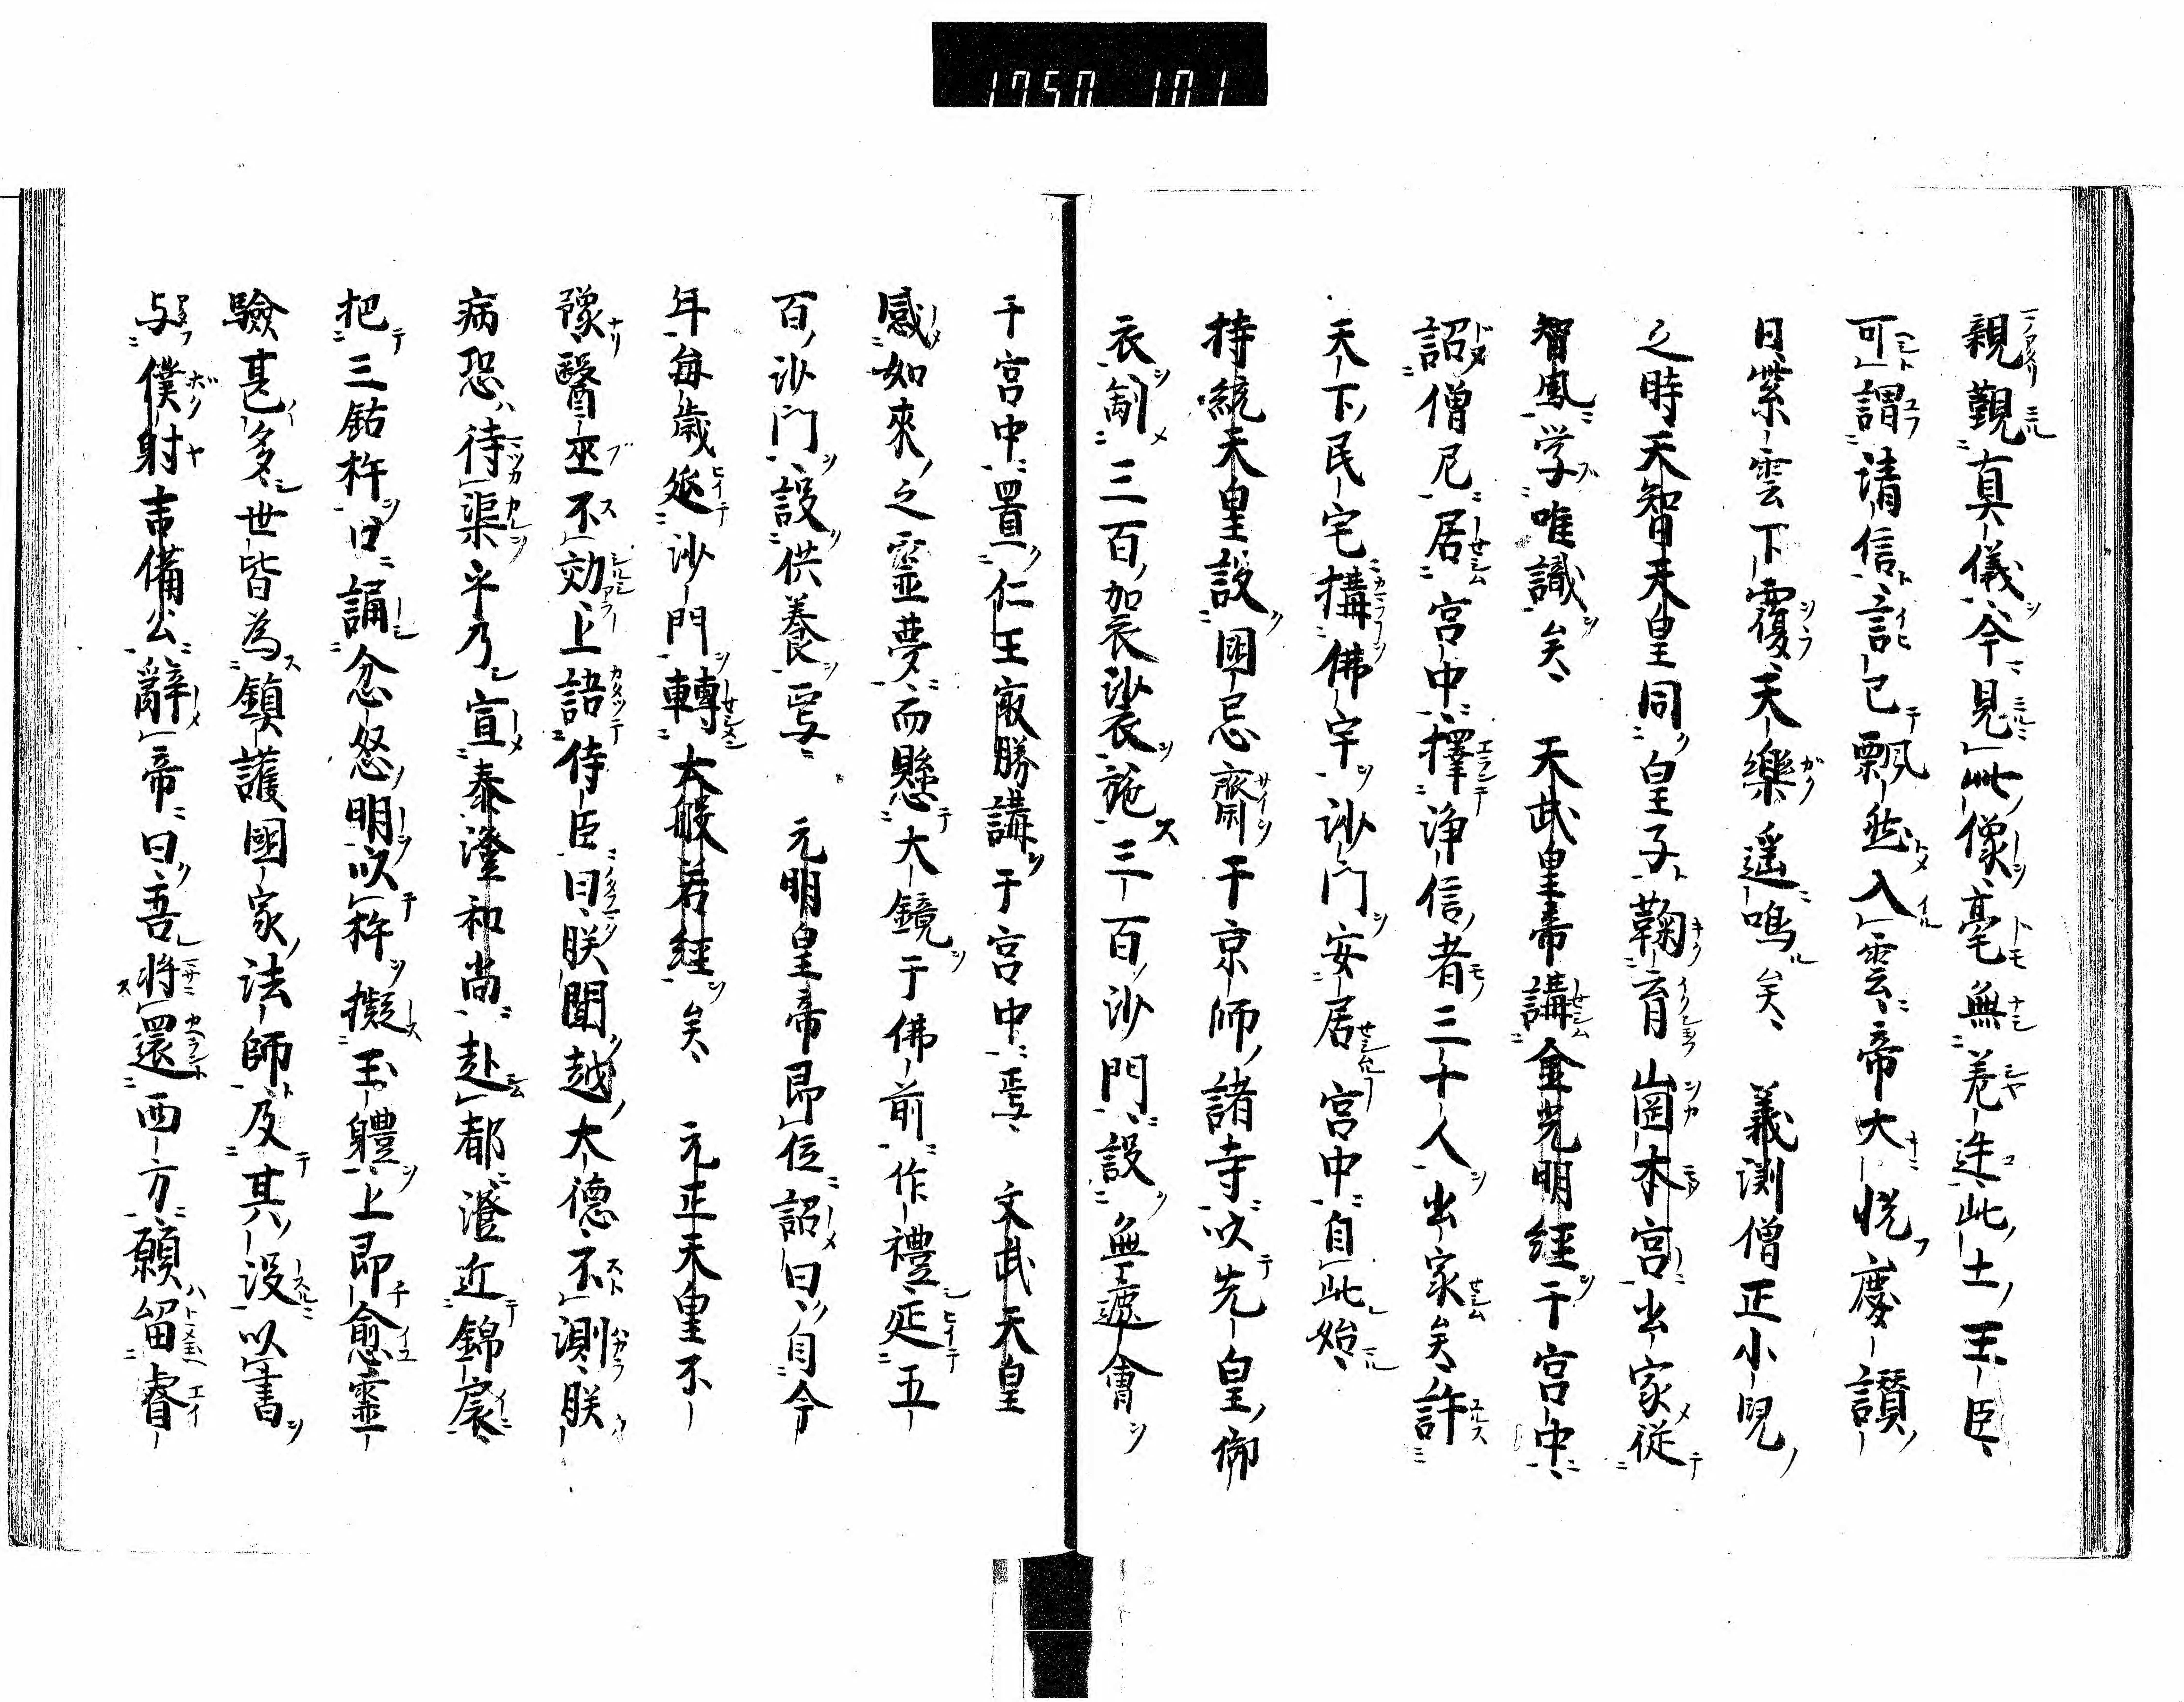 1950 101
親覲真儀今見此僧毫無差迕此土王臣
可謂請信言已飄然入雲帝大悦慶讃
日紫雲下覆天樂遥鳴矣　義渕僧正小兒
之時天智天皇同皇子鞠育崗本宮出家従
智鳳学唯識矣　天武皇帝講金光明經于宮中
詔僧尼居宮中擇浄信者三十人出家矣許
天下民宅搆佛宇沙門安居宮中自此始
持統天皇設國忌齋于京師諸寺以先皇御
衣制三百加袈裟施三百沙門設無遮會
于宮中置仁王㝡勝講于宮中焉　文武天皇
感如來之霊夢而懸大鏡于佛前作禮延五
百沙門設供養焉　元明皇帝即位詔曰自今
年毎歳延沙門轉大般若經矣　元正天皇不
豫醫巫不効上語侍臣曰朕聞越大德不測朕
病恐待渠乎乃宣泰澄和尚赴都澄近錦扆
把三鈷杵口誦忿怒明以杵擬玉體上即愈霊
驗甚多世皆為鎮護國家法師及其没以書
与僕射吉備公辭帝曰吾将還西方願留睿